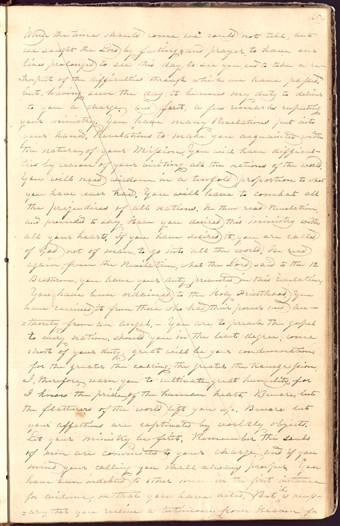 When the time should come we could not tell, but
we sought the Lord by fasting and prayer, to have our
lives prolonged to see this day, to see you and to take a re-
trospect of the difficulties through which we have passed
but, having seen the day it becomes my duty to deliver
to you a charge, and first, a few remarks respecting
your ministry. You have many Revelations put into
your hands, Revelations to make you acquainted with
the nature of your Mission, You will have difficul-
ties by reason of your visiting all the nations of the world.
You will need wisdom in a tenfold proportion to what
you have ever had, You will have to combat all
the prejudices of all nations. He then read Revelation
and proceeded to say Have you desired this ministry with
all your hearts, If you have desired it, you are called
of God, not of man, to go into all the world. He read
again from the Revelation, what the Lord said to the 12
Brethren, you have your duty presented in this Revelation
You have been ordained to the Holy Priesthood, You
have received it from those who had their power and au-
thority from an angel, - You are to preach the gospel
to every nation, should you in the least degree, come
short of your duty, great will be your condemnation
for the greater the calling the greater the transgression
I, therefore, warn you to cultivate great humility, for
I know the pride of the human heart, Beware, lest
the flatterers of the world lift you up. Beware lest
your affections are captivated by worldly objects.
Let your ministry be first. Remember the souls
of men are committed to your charge, and if you
mind your calling you shall always prosper. You
have been indebted to other men in the first instance
for evidence, on that you have acted. But is neces-
sary that you receive a testimony from Heaven for